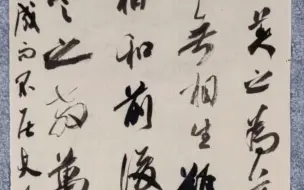 美之為
無相生難
相和前後
言之教萬
成而不居夫